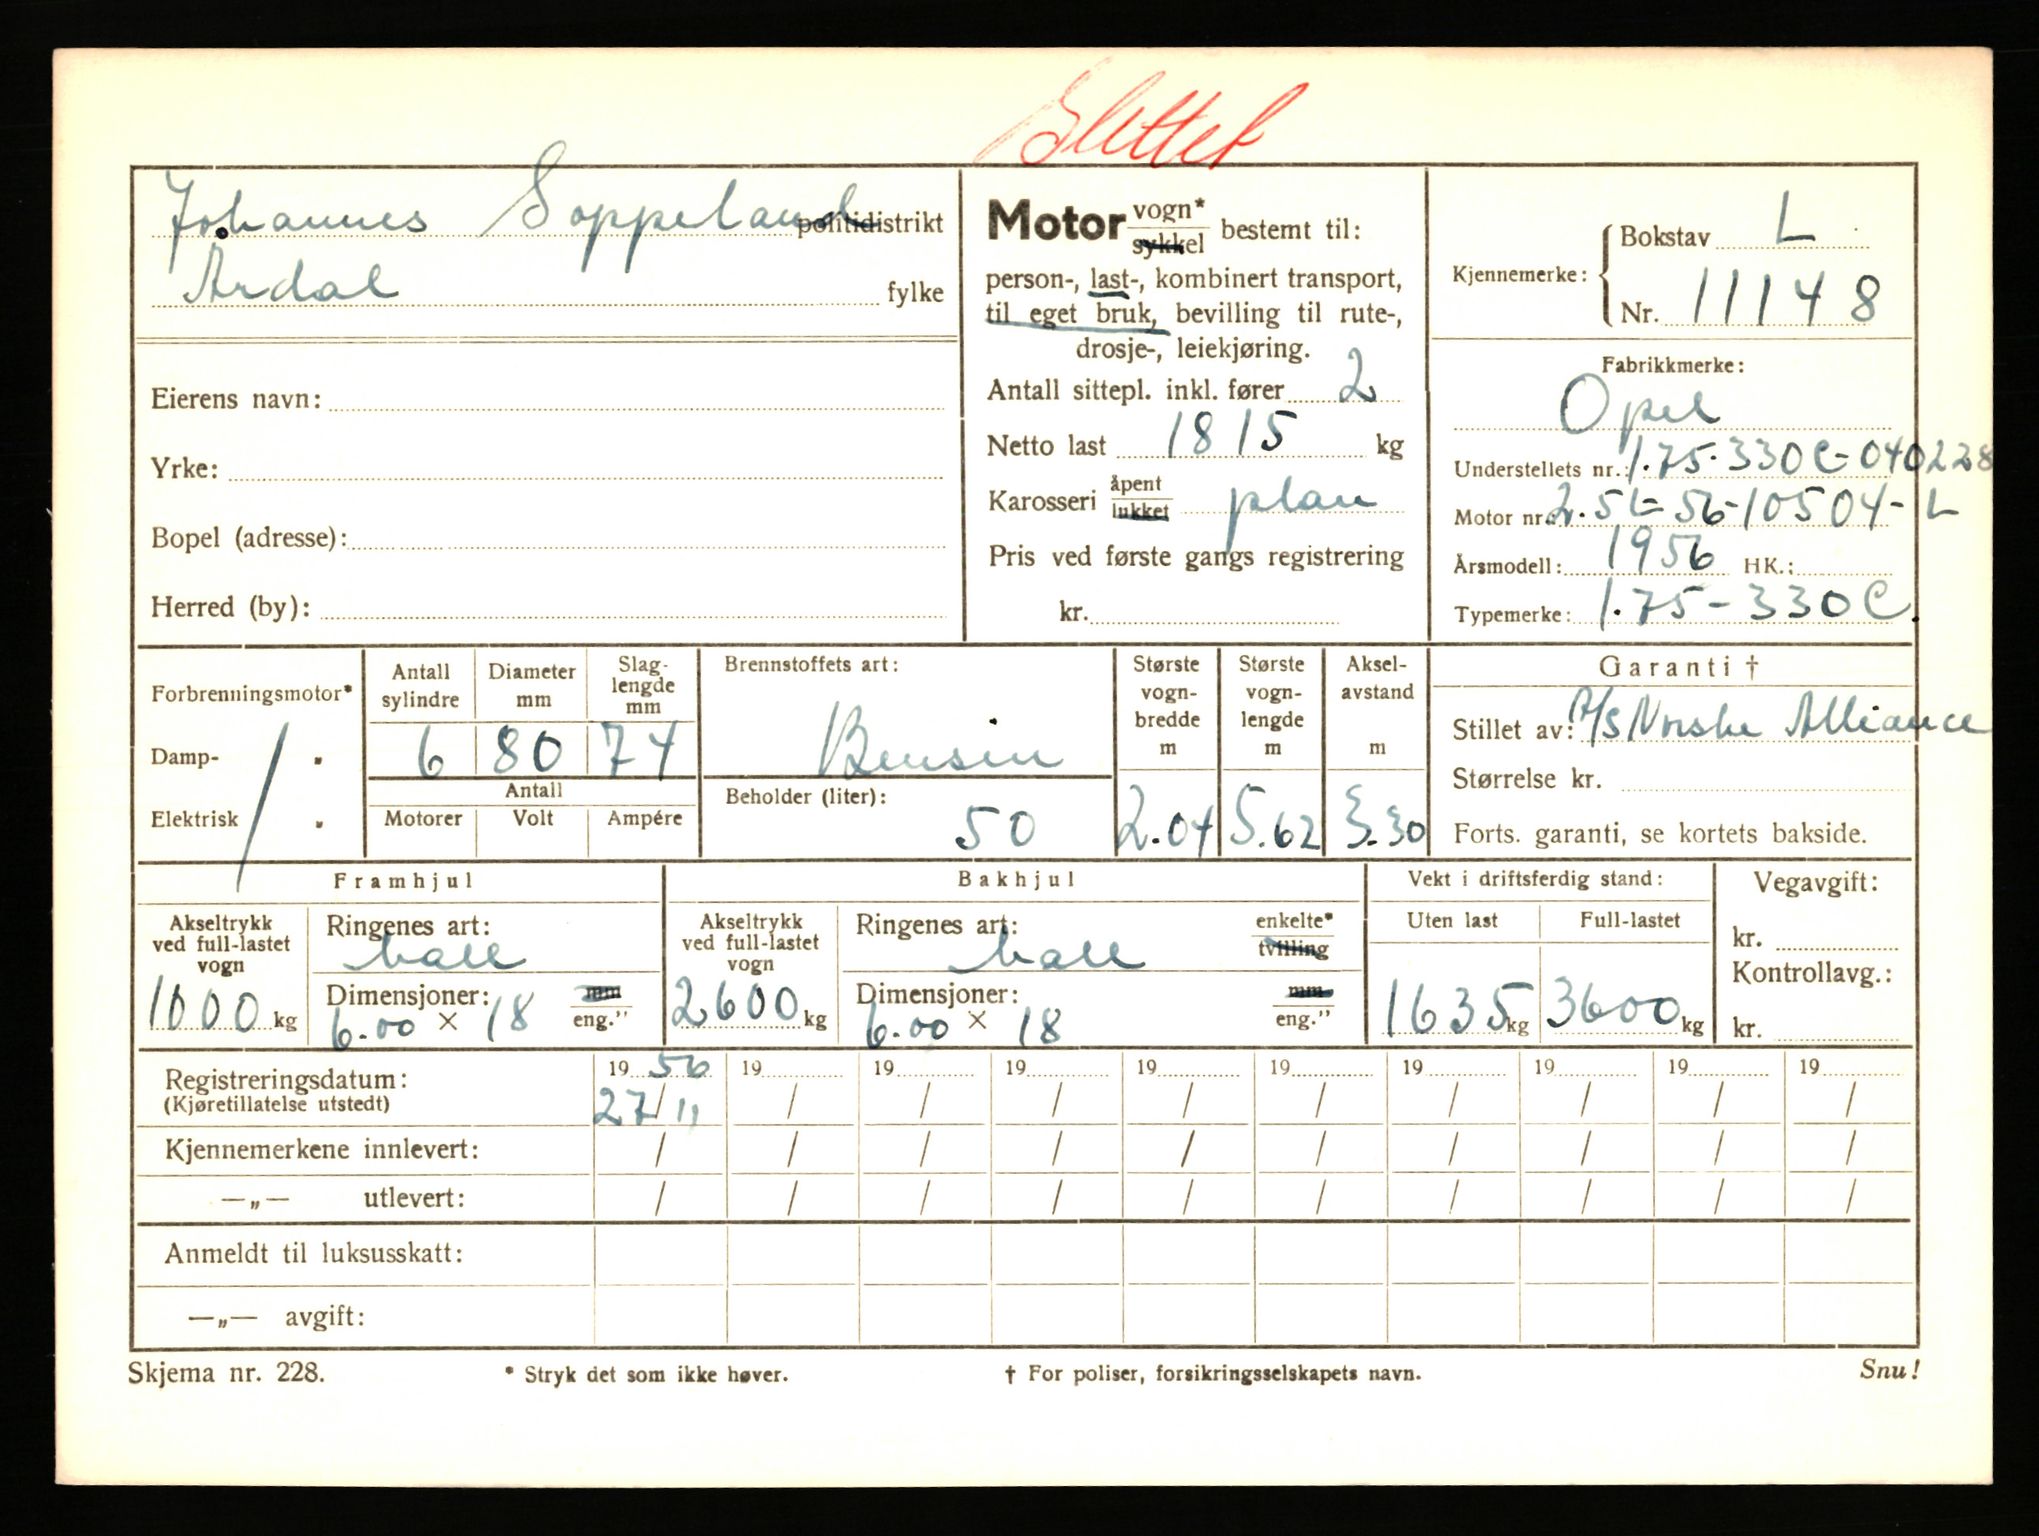 Slettet
Johannes Soppeland politidistrikt
Årdal fylke
Eierens navn:
Yrke:
Bopel (adresse):
Herred (by):
Motor vogn* sykkel bestemt til:
person-, last-, kombinert transport,
til eget bruk, bevilling til rute-,
drosje-, leiekjøring.
Antall sittepl. inkl. fører 2
Netto last 1815 kg
Karosseri åpent lukket plan
Pris ved første gangs registrering
kr.
Kjennemerke: Bokstav L
Nr. 11148
Fabrikkmerke:
Opel
Understellets nr.: 1.75-330C-040228
Motor nr. 2.5L-56-10504-L
Årsmodell: 1956 HK.:
Typemerke: 1.75-330C.
Forbrenningsmotor*
Damp- "
Elektrisk "
Antall sylindre Diameter mm Slag-lengde mm
6 80 74
Antall
Motorer Volt Ampére
Brennstoffets art:
Bensin
Beholder (liter):
50
Største vogn-bredde m
2.04
Største vogn-lengde m
5.62
Aksel-avstand m
3.30
Garanti †
Stillet av: A/S Norske Alliance
Størrelse kr.
Forts. garanti, se kortets bakside.
Framhjul
Akseltrykk ved full-lastet vogn
1000 kg
Ringenes art:
ball
Dimensjoner: mm
6.00 × 18 eng."
Bakhjul
Akseltrykk ved full-lastet vogn
2600 kg
Ringenes art: enkelte*
ball tvilling
Dimensjoner: mm
6.00 × 18 eng."
Vekt i driftsferdig stand:
Uten last Full-lastet
1635 kg 3600 kg
Vegavgift:
kr.
Kontrollavg.:
kr.
Registreringsdatum: 19 56 19 19 19 19 19 19 19 19 19
(Kjøretillatelse utstedt) 27/11 / / / / / / / / /
Kjennemerkene innlevert: / / / / / / / / / /
—„— utlevert: / / / / / / / / / /
Anmeldt til luksusskatt:
—„— avgift:
Skjema nr. 228. * Stryk det som ikke høver. † For poliser, forsikringsselskapets navn. Snu!